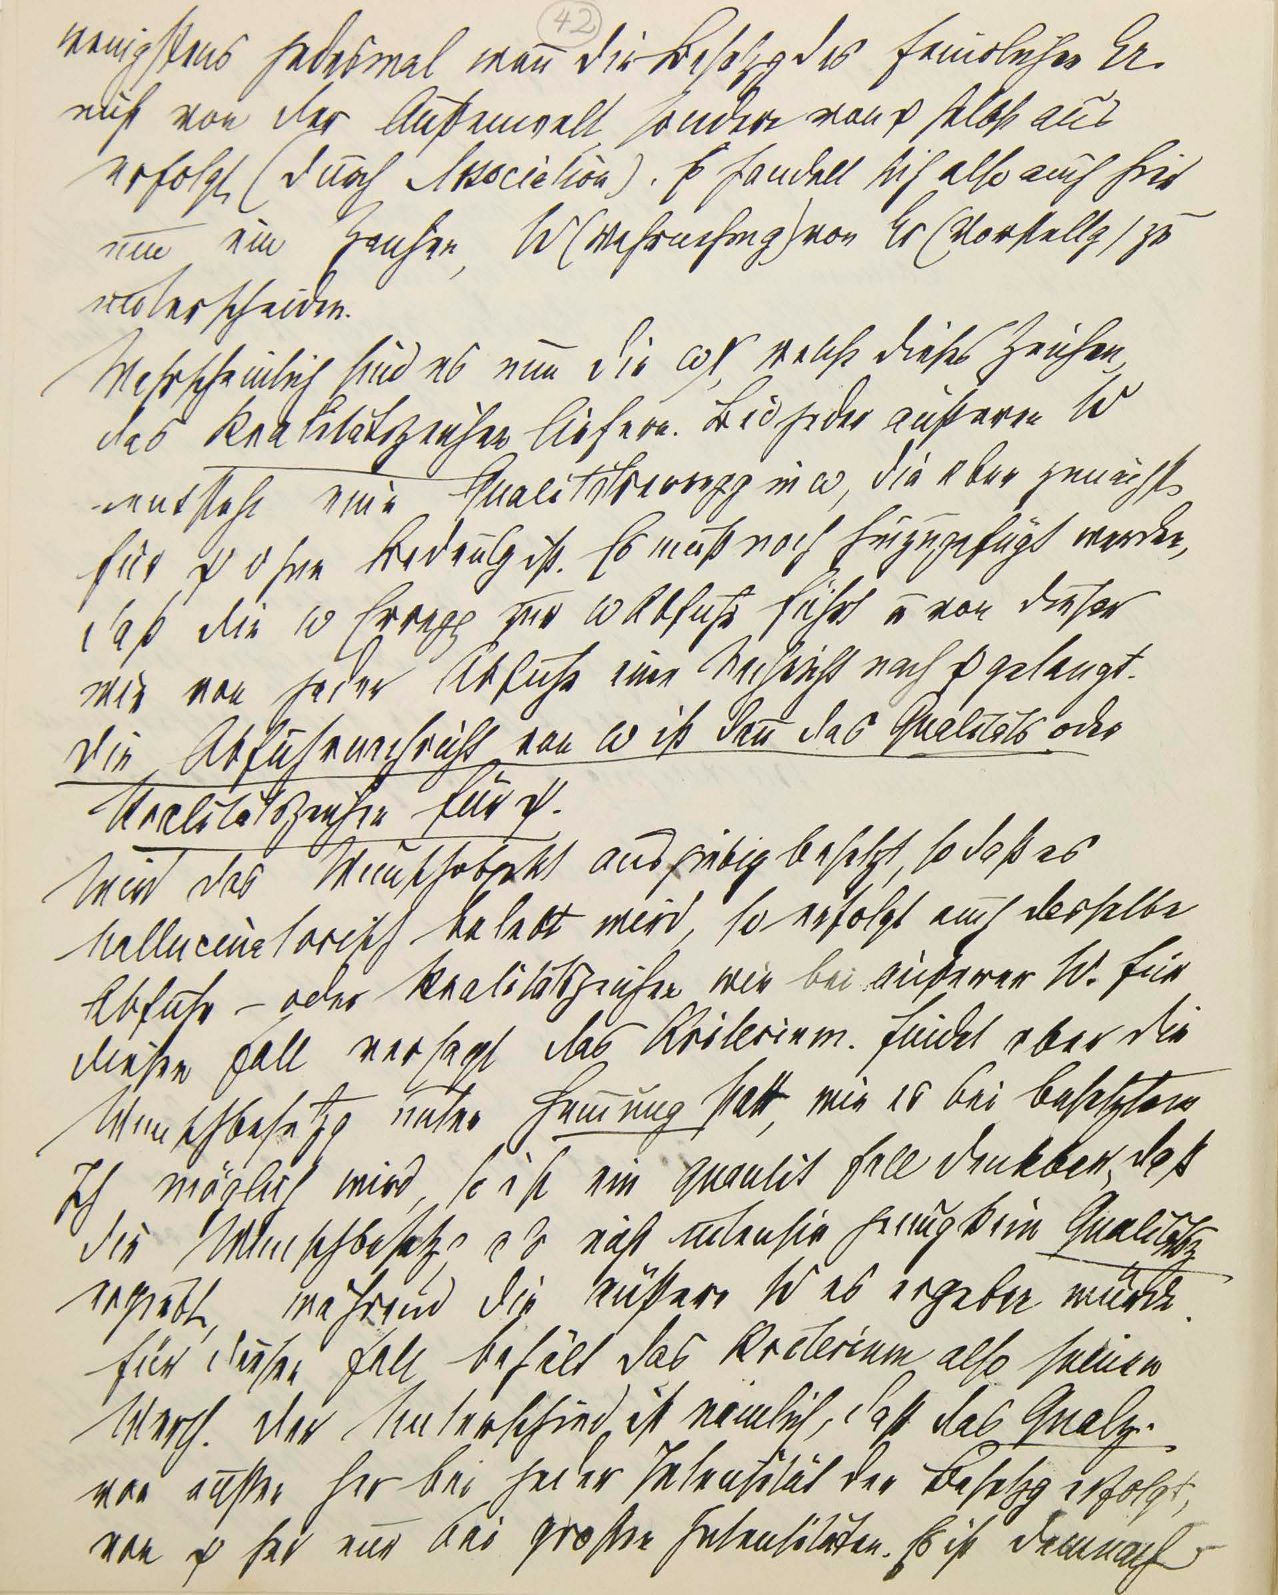 42
wenigstens jedesmal wen̄ die Besetzg des feindlichen Er.
nicht von der Außenwelt, sondern von ψ selbst aus
erfolgt (durch Association). Es handelt sich also auch hier
um ein Zeichen, W (Wahrnehmg) von Er (Vorstellg) zu
unterscheiden.
Wahrscheinlich sind es nun die ωN, welche dieses Zeichen,
das Realitätszeichen liefern. Bei jeder äußeren W
entsteht eine Qualitätserregg in ω, die aber zunächst
für ψ ohne Bedeutg ist. Es muß noch hinzugefügt werden,
daß die ω Erregg zur ω Abfuhr führt u von dieser
wie von jeder Abfuhr eine Nachricht nach ψ gelangt.
Die Abfuhrnachricht von ω ist den̄ das Qualitäts oder
Realitätszeichen für ψ.
Wird das Wunschobjekt ausgiebig besetzt, so daß es
hallucinatorisch belebt wird, so erfolgt auch dasselbe
Abfuhr- oder Realitätszeichen wie bei äußerer W. Für
diesen Fall versagt das Kriterium. Findet aber die
Wunschbesetzg unter Hemmung statt, wie es bei besetztem
Ich möglich wird, so ist ein quantit Fall denkbar, daß
die Wunschbesetzg als nicht intensiv genug kein Qualitätsz
ergiebt, während die äußere W es ergeben würde.
Für diesen Fall behält das Kriterium also seinen
Werth. Der Unterschied ist nämlich, daß das Qualz.
von außen her bei jeder Intensität der Besetzg erfolgt,
von ψ her nur bei großen Intensitäten. Es ist demnach